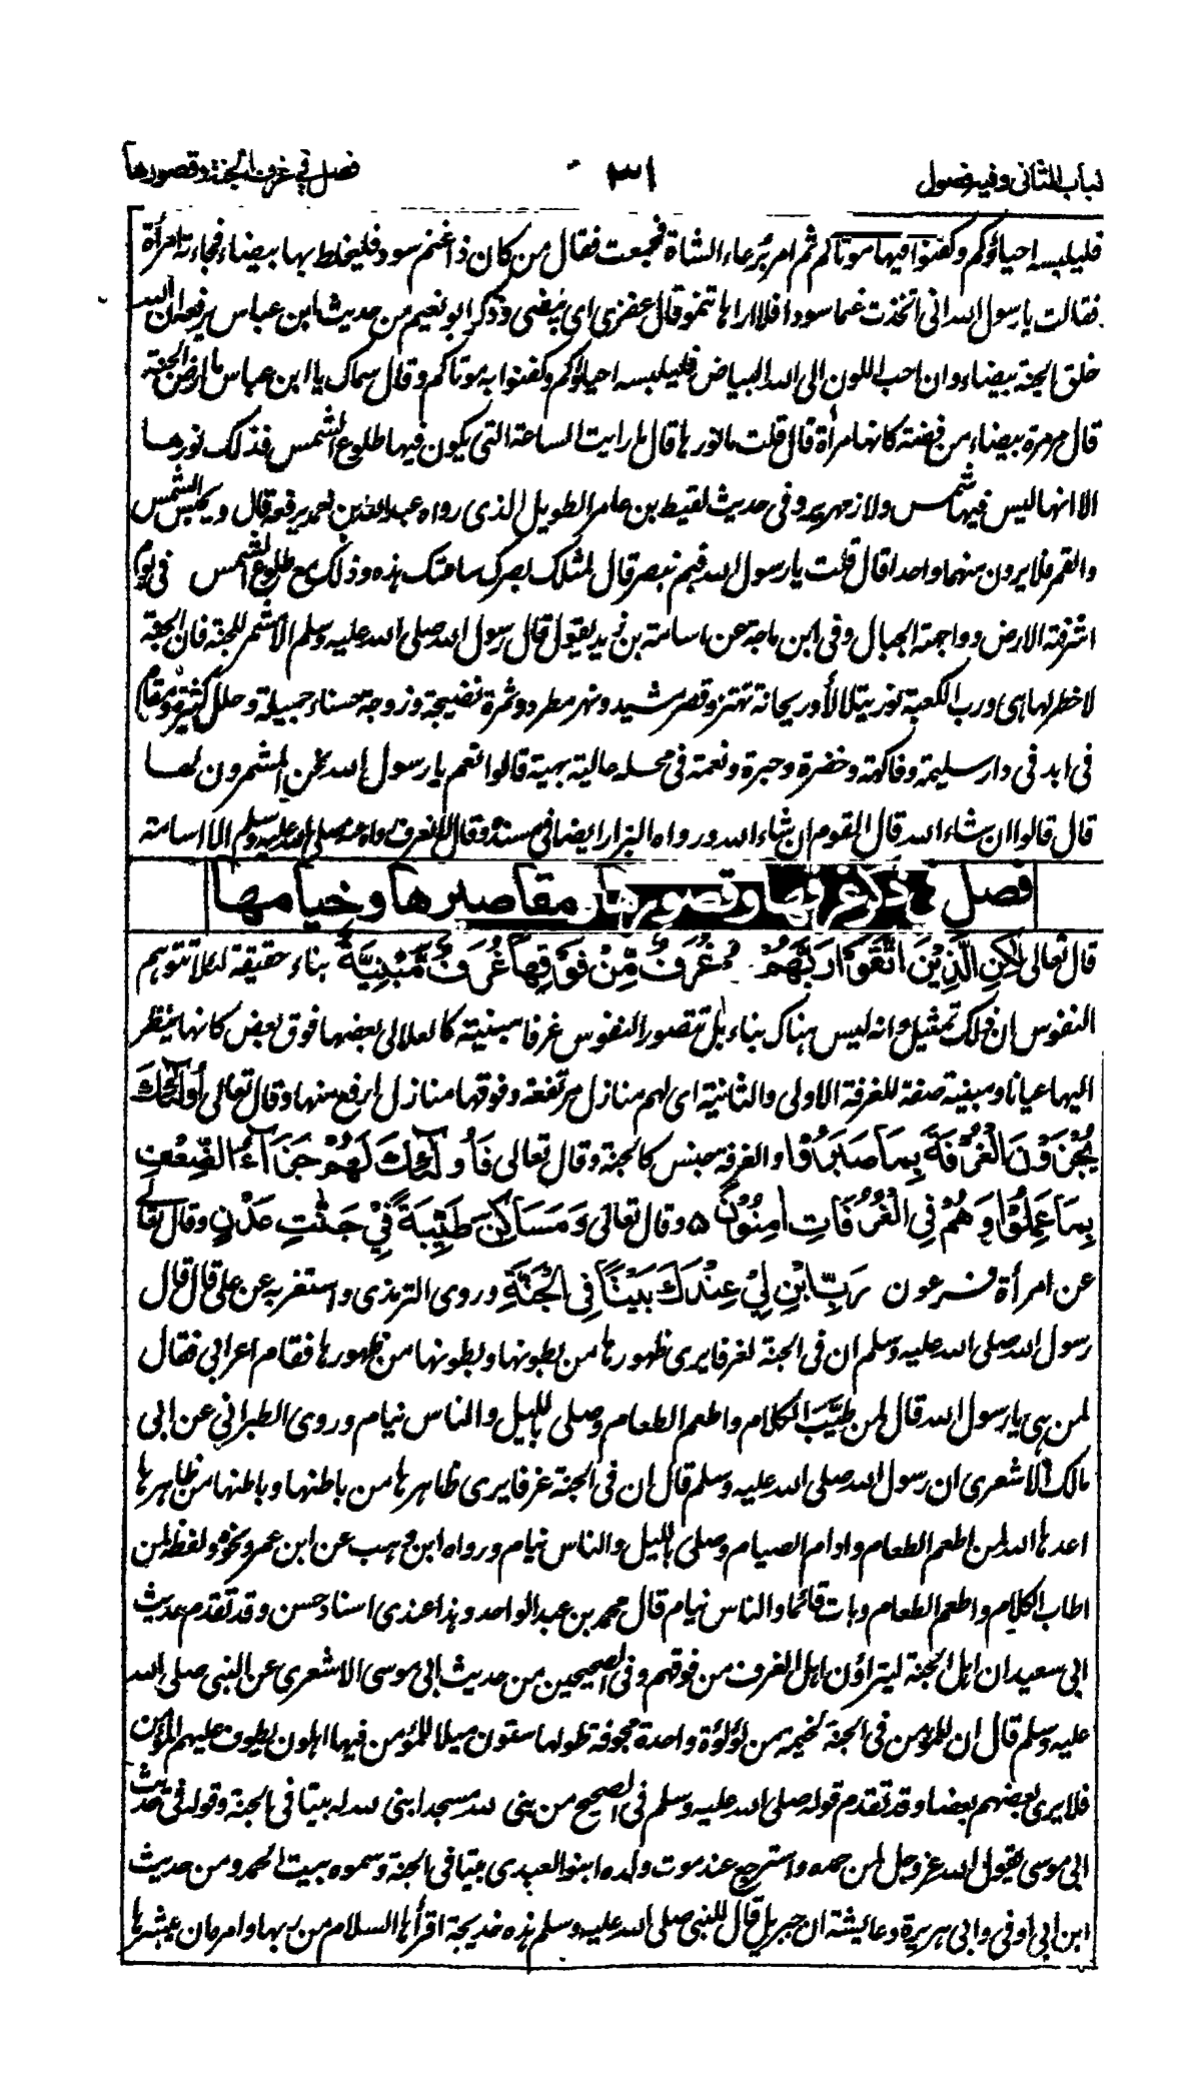 لباب الثانى وفيه فصول
٣١
فصل في غرف الجنة وقصورها
فليلبسه احياؤكم وكفنوا فيها موتاكم ثم امر برعاء الشاة فجمعت فقال من كان ذا غنم سود فليخلط بها بيضاء فجاءته امرأة
فقالت يا رسول الله انى اتخذت غنما سودا فلا اراها تنمو قال عفرى اى بيضى وذكر ابو نعيم من حديث ابن عباس يرفعه ان الله
خلق الجنة بيضاء وان احب اللون الى الله البياض فليلبسه احياؤكم وكفنوا به موتاكم وقال سماك يا ابن عباس ما ارض الجنة
قال مرمرة بيضاء من فضة كانها مرأة قال قلت ما نورها قال ما رايت الساعة التى يكون فيها طلوع الشمس فذلك نورها
الا انها ليس فيها شمس ولا زمهرير وفى حديث لقيط بن عامر الطويل الذى رواه عبد الله بن احمد يرفعه قال ويحبس الشمس
والقمر فلا يرون منهما واحدا قال قلت يا رسول الله فبم نبصر قال لمثلك بصرك ساعتك هذه وذلك مع طلوع الشمس فى يوم
اشرقته الارض وواجهته الجبال وفى ابن ماجة عن اسامة بن زيد يقول قال رسول الله صلى الله عليه وسلم الا مشمر للجنة فان الجنة
لا خطر لها هى ورب الكعبة نور يتلألأ وريحانة تهتز وقصر مشيد ونهر مطرد وثمرة نضيجة وزوجة حسناء جميلة وحلل كثيرة ومقام
فى ابد فى دار سليمة وفاكهة وخضرة وحبرة ونعمة فى محلة عالية بهية قالوا نعم يا رسول الله نحن المشمرون لها
قال قالوا ان شاء الله قال القوم ان شاء الله ورواه البزار ايضا فى مسنده وقال لا نعرف رواه عنه صلى الله عليه وسلم الا اسامة
فصل فى ذكر غرفها وقصورها ومقاصيرها وخيامها
قال تعالى لٰكِنِ الَّذِيْنَ اتَّقَوْا رَبَّهُمْ غُرَفٌ مِّنْ فَوْقِهَا غُرَفٌ مَّبْنِيَّةٌ بناء حقيقة لئلا تتوهم
النفوس ان ذلك تمثيل وانه ليس هناك بناء بل تتصور النفوس غرفا مبنية كالعلالى بعضها فوق بعض كانها ينظر
اليها عيانا ومبنية صفة للغرفة الاولى والثانية اى لهم منازل مرتفعة وفوقها منازل ارفع منها وقال تعالى أُولٰئِكَ
يُجْزَوْنَ الْغُرْفَةَ بِمَا صَبَرُوْا والغرفة جنس كالجنة وقال تعالى فَأُولٰئِكَ لَهُمْ جَزَآءُ الضِّعْفِ
بِمَا عَمِلُوْا وَهُمْ فِى الْغُرُفَاتِ اٰمِنُوْنَ ٥ وقال تعالى وَمَسَاكِنَ طَيِّبَةً فِيْ جَنّٰتِ عَدْنٍ وقال تعالى
عن امرأة فرعون رَبِّ ابْنِ لِيْ عِنْدَكَ بَيْتًا فِى الْجَنَّةِ وروى الترمذى واستغربه عن على قال قال
رسول الله صلى الله عليه وسلم ان فى الجنة لغرفا يرى ظهورها من بطونها وبطونها من ظهورها فقام اعرابى فقال
لمن هى يا رسول الله قال لمن طَيَّبَ الكلام واطعم الطعام وصلى بالليل والناس نيام وروى الطبرانى عن ابى
مالك الاشعرى ان رسول الله صلى الله عليه وسلم قال ان فى الجنة غرفا يرى ظاهرها من باطنها وباطنها من ظاهرها
اعدها الله لمن اطعم الطعام وادام الصيام وصلى بالليل والناس نيام ورواه ابن وهب عن ابن عمرو نحوه ولفظه لمن
اطاب الكلام واطعم الطعام وبات قائما والناس نيام قال محمد بن عبد الواحد وهذا عندى اسناد حسن وقد تقدم حديث
ابى سعيد ان اهل الجنة ليتراؤن اهل الغرف من فوقهم وفى الصحيحين من حديث ابى موسى الاشعرى عن النبى صلى الله
عليه وسلم قال ان للمؤمن فى الجنة لخيمة من لؤلؤة واحدة مجوفة طولها ستون ميلا للمؤمن فيها اهلون يطوف عليهم المؤمن
فلا يرى بعضهم بعضا وقد تقدم قوله صلى الله عليه وسلم فى الصحيح من بنى لله مسجدا بنى لله له بيتا فى الجنة وقوله فى حديث
ابى موسى يقول الله عز وجل لمن حمده واسترجع عند موت ولده ابنوا لعبدى بيتا فى الجنة وسموه بيت الحمد ومن حديث
ابن ابى اوفى وابى هريرة وعايشة ان جبريل قال للنبى صلى الله عليه وسلم هذه خديجة اقرأها السلام من ربها وامره ان يبشرها